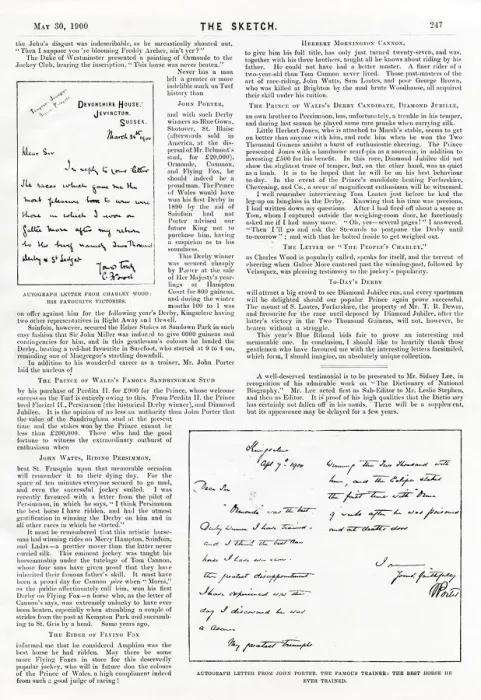 MAY 30, 1900
THE SKETCH.
247
the John's disgust was indescribable, as he sarcastically shouted out,
"Then I suppose you 're blooming Freddy Archer, ain't yer?"
The Duke of Westminster presented a painting of Ormonde to the
Jockey Club, bearing the inscription, "This horse was never beaten."
Never has a man
left a greater or more
indelible mark on Turf
history than
JOHN PORTER,
and with such Derby
winners as Blue Gown,
Shotover, St. Blaise
(afterwards sold in
America, at the dis-
persal of Mr. Belmont's
stud, for £20,000),
Ormonde, Common,
and Flying Fox, he
should indeed be a
proud man. The Prince
of Wales would have
won his first Derby in
1890 by the aid of
Sainfoin had not
Porter advised our
future King not to
purchase him, having
a suspicion as to his
soundness.
This Derby winner
was secured cheaply
by Porter at the sale
of Her Majesty's year-
lings at Hampton
Court for 800 guineas,
and during the winter
months 100 to 1 was
DEVONSHIRE HOUSE,
JEVINGTON,
SUSSEX.
Dear Sir
In reply to your letter
The races which gave me the
most pleasure
Derby & St Leger
AUTOGRAPH LETTER FROM CHARLEY WOOD:
HIS FAVOURITE VICTORIES.
on offer against him for the following year's Derby, Kingsclere having
two other representatives in Right Away and Orwell.
Sainfoin, however, secured the Esher Stakes at Sandown Park in such
easy fashion that Sir John Miller was induced to give 6000 guineas and
contingencies for him, and in this gentleman's colours he landed the
Derby, beating a red-hot favourite in Surefoot, who started at 9 to 4 on,
reminding one of Macgregor's startling downfall.
In addition to his wonderful career as a trainer, Mr. John Porter
laid the nucleus of
THE PRINCE OF WALES'S FAMOUS SANDRINGHAM STUD
by his purchase of Perdita II. for £900 for the Prince, whose welcome
success on the Turf is entirely owing to this. From Perdita II. the Prince
bred Florizel II., Persimmon (the historical Derby winner), and Diamond
Jubilee. It is the opinion of no less an authority than John Porter that
the value of the Sandringham stud at the present
time and the stakes won by the Prince cannot be
less than £200,000. Those who had the good
fortune to witness the extraordinary outburst of
enthusiasm when
JOHN WATTS, RIDING PERSIMMON,
beat St. Frusquin upon that memorable occasion
will remember it to their dying day. For the
space of ten minutes everyone seemed to go mad,
and even the successful jockey smiled. I was
recently favoured with a letter from the pilot of
Persimmon, in which he says, "I think Persimmon
the best horse I have ridden, and had the utmost
gratification in winning the Derby on him and in
all other races in which he started."
It must be remembered that this artistic horse-
man had winning rides on Merry Hampton, Sainfoin,
and Ladas—a prettier mover than the latter never
carried silk. This eminent jockey was taught his
horsemanship under the tutelage of Tom Cannon,
whose four sons have given proof that they have
inherited their famous father's skill. It must have
been a proud day for Cannon père when "Morni,"
as the public affectionately call him, won his first
Derby on Flying Fox—a horse who, as the letter of
Cannon's says, was extremely unlucky to have ever
been beaten, especially when stumbling a couple of
strides from the post at Kempton Park and succumb-
ing to St. Gris by a head. Some years ago,
THE RIDER OF FLYING FOX
informed me that he considered Amphion was the
best horse he had ridden. May there be some
more Flying Foxes in store for this deservedly
popular jockey, who will in future don the colours
of the Prince of Wales, a high compliment indeed
from such a good judge of racing!
HERBERT MORNINGTON CANNON,
to give him his full title, has only just turned twenty-seven, and was,
together with his three brothers, taught all he knows about riding by his
father. He could not have had a better master. A finer rider of a
two-year-old than Tom Cannon never lived. Those past-masters of the
art of race-riding, John Watts, Sam Loates, and poor George Brown,
who was killed at Brighton by the mad brute Woodhouse, all acquired
their skill under his tuition.
THE PRINCE OF WALES'S DERBY CANDIDATE, DIAMOND JUBILEE,
an own brother to Persimmon, has, unfortunately, a trouble in his temper,
and during last season he played some rare pranks when carrying silk.
Little Herbert Jones, who is attached to Marsh's stable, seems to get
on better than anyone with him, and rode him when he won the Two
Thousand Guineas amidst a burst of enthusiastic cheering. The Prince
presented Jones with a handsome scarf-pin as a souvenir, in addition to
investing £500 for his benefit. In this race, Diamond Jubilee did not
show the slightest trace of temper, but, on the other hand, was as quiet
as a lamb. It is to be hoped that he will be on his best behaviour
to-day. In the event of the Prince's candidate beating Forfarshire,
Chevening, and Co., a scene of magnificent enthusiasm will be witnessed.
I well remember interviewing Tom Loates just before he had the
leg-up on Isinglass in the Derby. Knowing that his time was precious,
I had written down my questions. After I had fired off about a score at
Tom, whom I captured outside the weighing-room door, he facetiously
asked me if I had many more. "Oh, yes—several pages!" I answered.
"Then I 'll go and ask the Stewards to postpone the Derby until
to-morrow"; and with that he bolted inside to get weighed out.
THE LETTER OF "THE PEOPLE'S CHARLEY,"
as Charles Wood is popularly called, speaks for itself, and the torrent of
cheering when Galtee More cantered past the winning-post, followed by
Velasquez, was pleasing testimony to the jockey's popularity.
TO-DAY'S DERBY
will attract a big crowd to see Diamond Jubilee run, and every sportsman
will be delighted should our popular Prince again prove successful.
The mount of S. Loates, Forfarshire, the property of Mr. T. R. Dewar,
and favourite for the race until deposed by Diamond Jubilee, after the
latter's victory in the Two Thousand Guineas, will not, however, be
beaten without a struggle.
This year's Blue Riband bids fair to prove an interesting and
memorable one. In conclusion, I should like to heartily thank those
gentlemen who have favoured me with the interesting letters facsimiled,
which form, I should imagine, an absolutely unique collection.
A well-deserved testimonial is to be presented to Mr. Sidney Lee, in
recognition of his admirable work on "The Dictionary of National
Biography." Mr. Lee acted first as Sub-Editor to Mr. Leslie Stephen,
and then as Editor. It is proof of his high qualities that the Dictionary
has certainly not fallen off in his hands. There will be a supplement,
but its appearance may be delayed for a few years.
Apl 7th 1900
Dear Sir
"Ormonde" was the best
Derby Winner I have trained.
and I think the best
horse I have ever seen.
the greatest disappointment
I have experienced was the
day I discovered he was
a Roarer
My greatest triumphs
Winning the Two Thousand with
him, and the Eclipse Stakes
the first time with Orme
9 weeks after he was poisoned
and at deaths door
I am
Yours faithfully
J Porter
AUTOGRAPH LETTER FROM JOHN PORTER, THE FAMOUS TRAINER: THE BEST HORSE HE
EVER TRAINED.